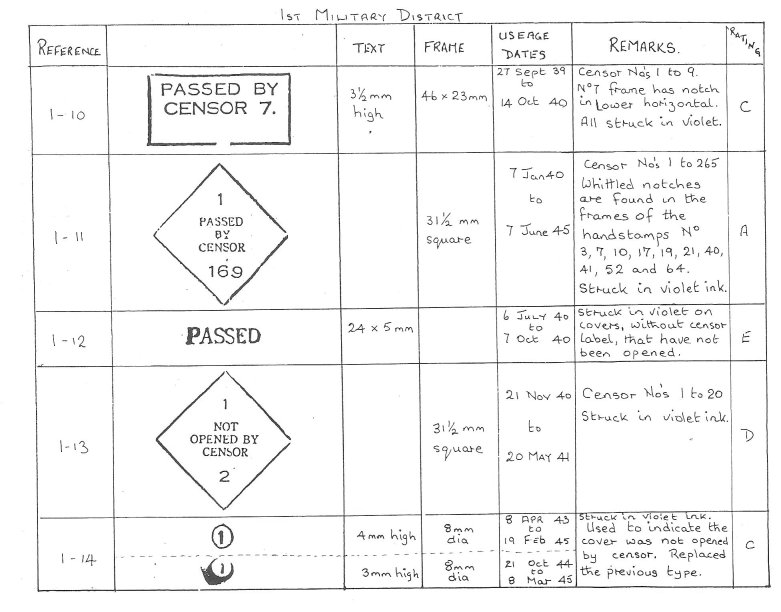 1ST MILITARY DISTRICT
REFERENCE TEXT FRAME USEAGE DATES REMARKS. RATING
1-10
PASSED BY
CENSOR 7.
3½mm
high
46 x 23mm
27 Sept 39
to
14 Oct 40
Censor No's 1 to 9.
Nº7 frame has notch
in lower horizontal.
All struck in violet.
C
1-11
1
PASSED
BY
CENSOR
169
31½ mm
square
7 Jan 40
to
7 June 45
Censor No's 1 to 265
Whittled notches
are found in the
frames of the
handstamps Nº
3, 7, 10, 17, 19, 21, 40,
41, 52 and 64.
Struck in violet ink.
A
1-12
PASSED
24 x 5mm
6 JULY 40
to
7 Oct 40
Struck in violet on
covers, without censor
label, that have not
been opened.
E
1-13
1
NOT
OPENED BY
CENSOR
2
31½ mm
square
21 Nov 40
to
20 MAY 41
Censor No's 1 to 20
Struck in violet ink.
D
1-14
1
4mm high
8mm
dia
8 APR 43
to
19 Feb 45
1
3mm high
8mm
dia
21 Oct 44
to
8 Mar 45
Struck in violet ink.
Used to indicate the
cover was not opened
by censor. Replaced
the previous type.
C